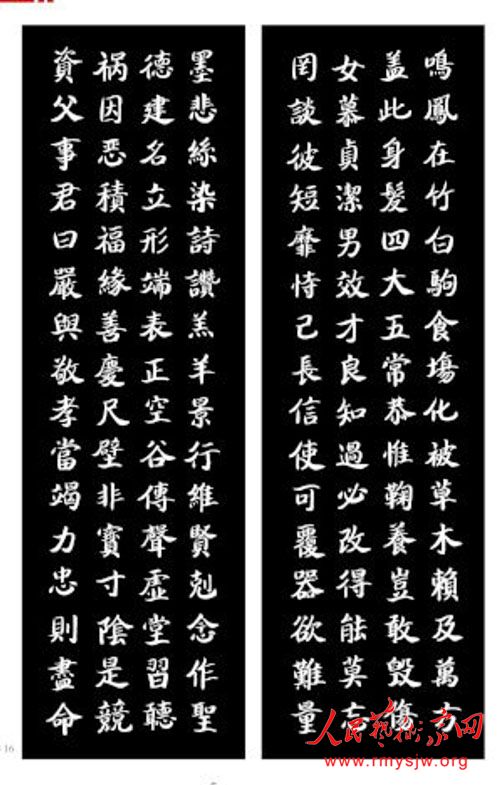 鳴鳳在竹白駒食塲化被草木賴及萬方
盖此身髮四大五常恭惟鞠養豈敢毀傷
女慕貞潔男效才良知過必改得能莫忘
罔談彼短靡恃己長信使可覆器欲難量
墨悲絲染詩讚羔羊景行維賢剋念作聖
德建名立形端表正空谷傳聲虛堂習聽
祸因恶積福緣善慶尺璧非寶寸陰是競
資父事君曰嚴與敬孝當竭力忠則盡命
人民藝術家网
www.rmysjw.org
16